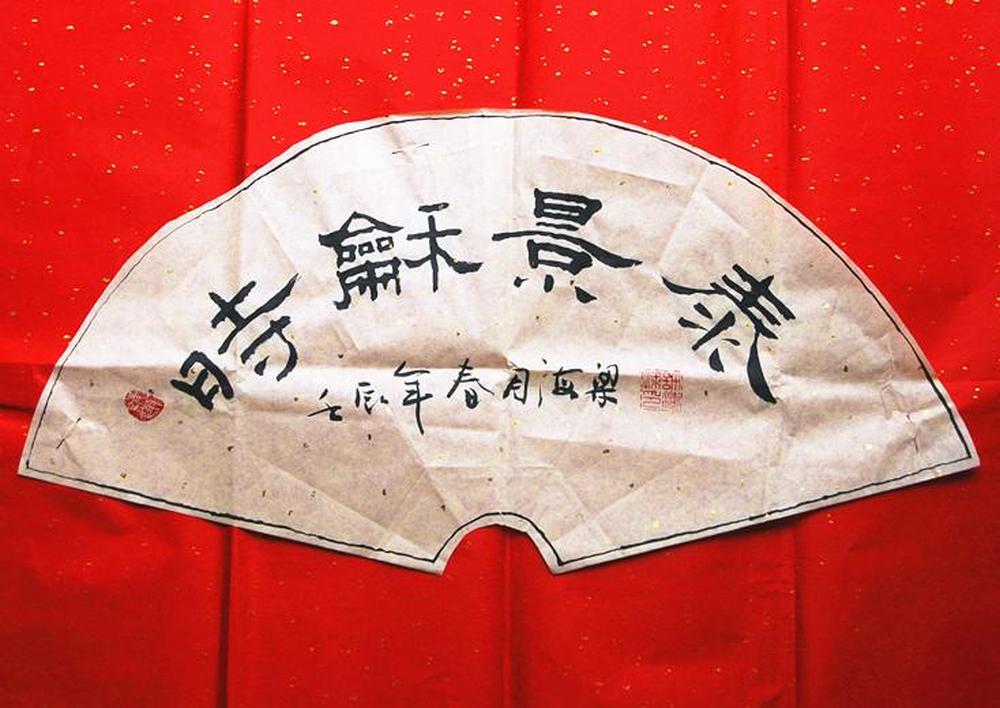 時龢景泰
壬辰年春月海梁